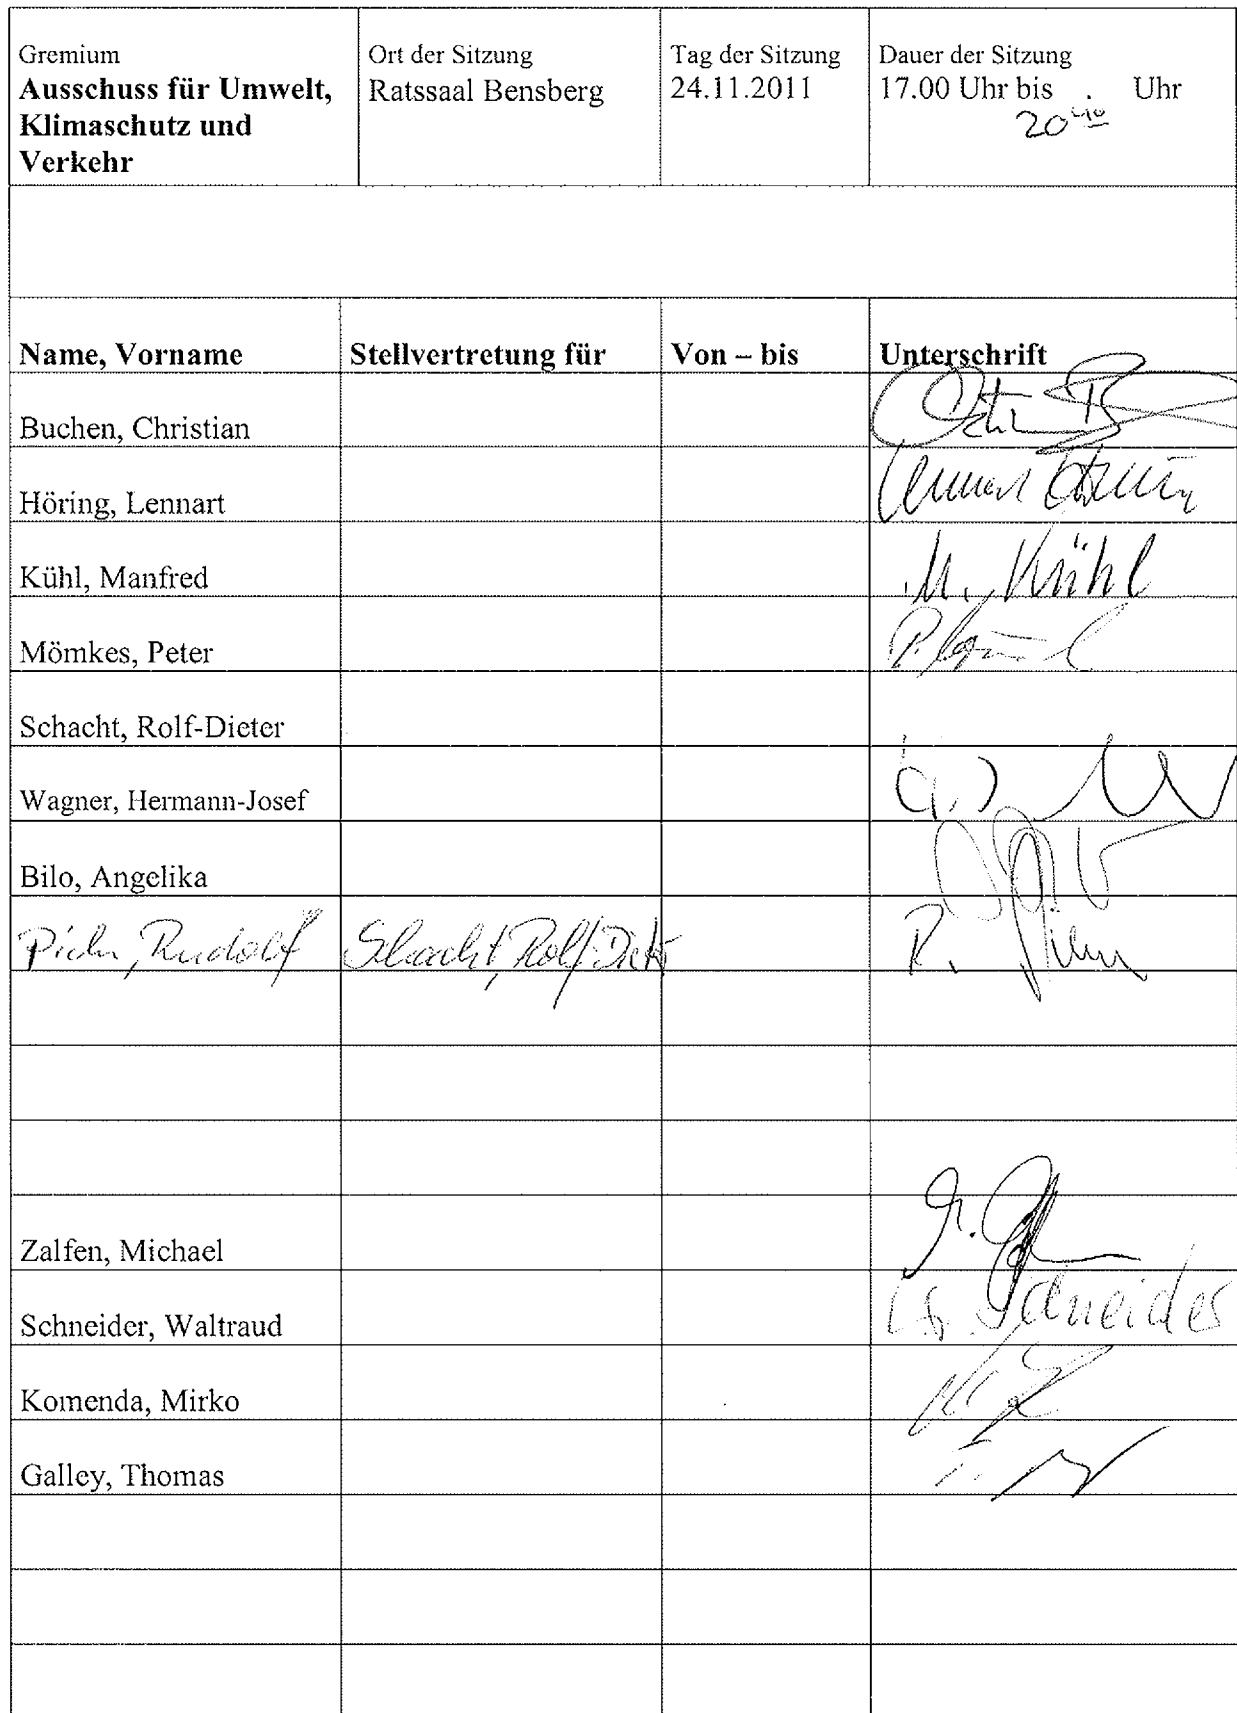 Gremium
Ausschuss für Umwelt,
Klimaschutz und
Verkehr
Ort der Sitzung
Ratssaal Bensberg
Tag der Sitzung
24.11.2011
Dauer der Sitzung
17.00 Uhr bis . Uhr
20 40
Name, Vorname Stellvertretung für Von – bis Unterschrift
Buchen, Christian
Höring, Lennart
Kühl, Manfred M. Kühl
Mömkes, Peter
Schacht, Rolf-Dieter
Wagner, Hermann-Josef
Bilo, Angelika
Rudolf Schacht, Rolf
Zalfen, Michael
Schneider, Waltraud Schneider
Komenda, Mirko
Galley, Thomas